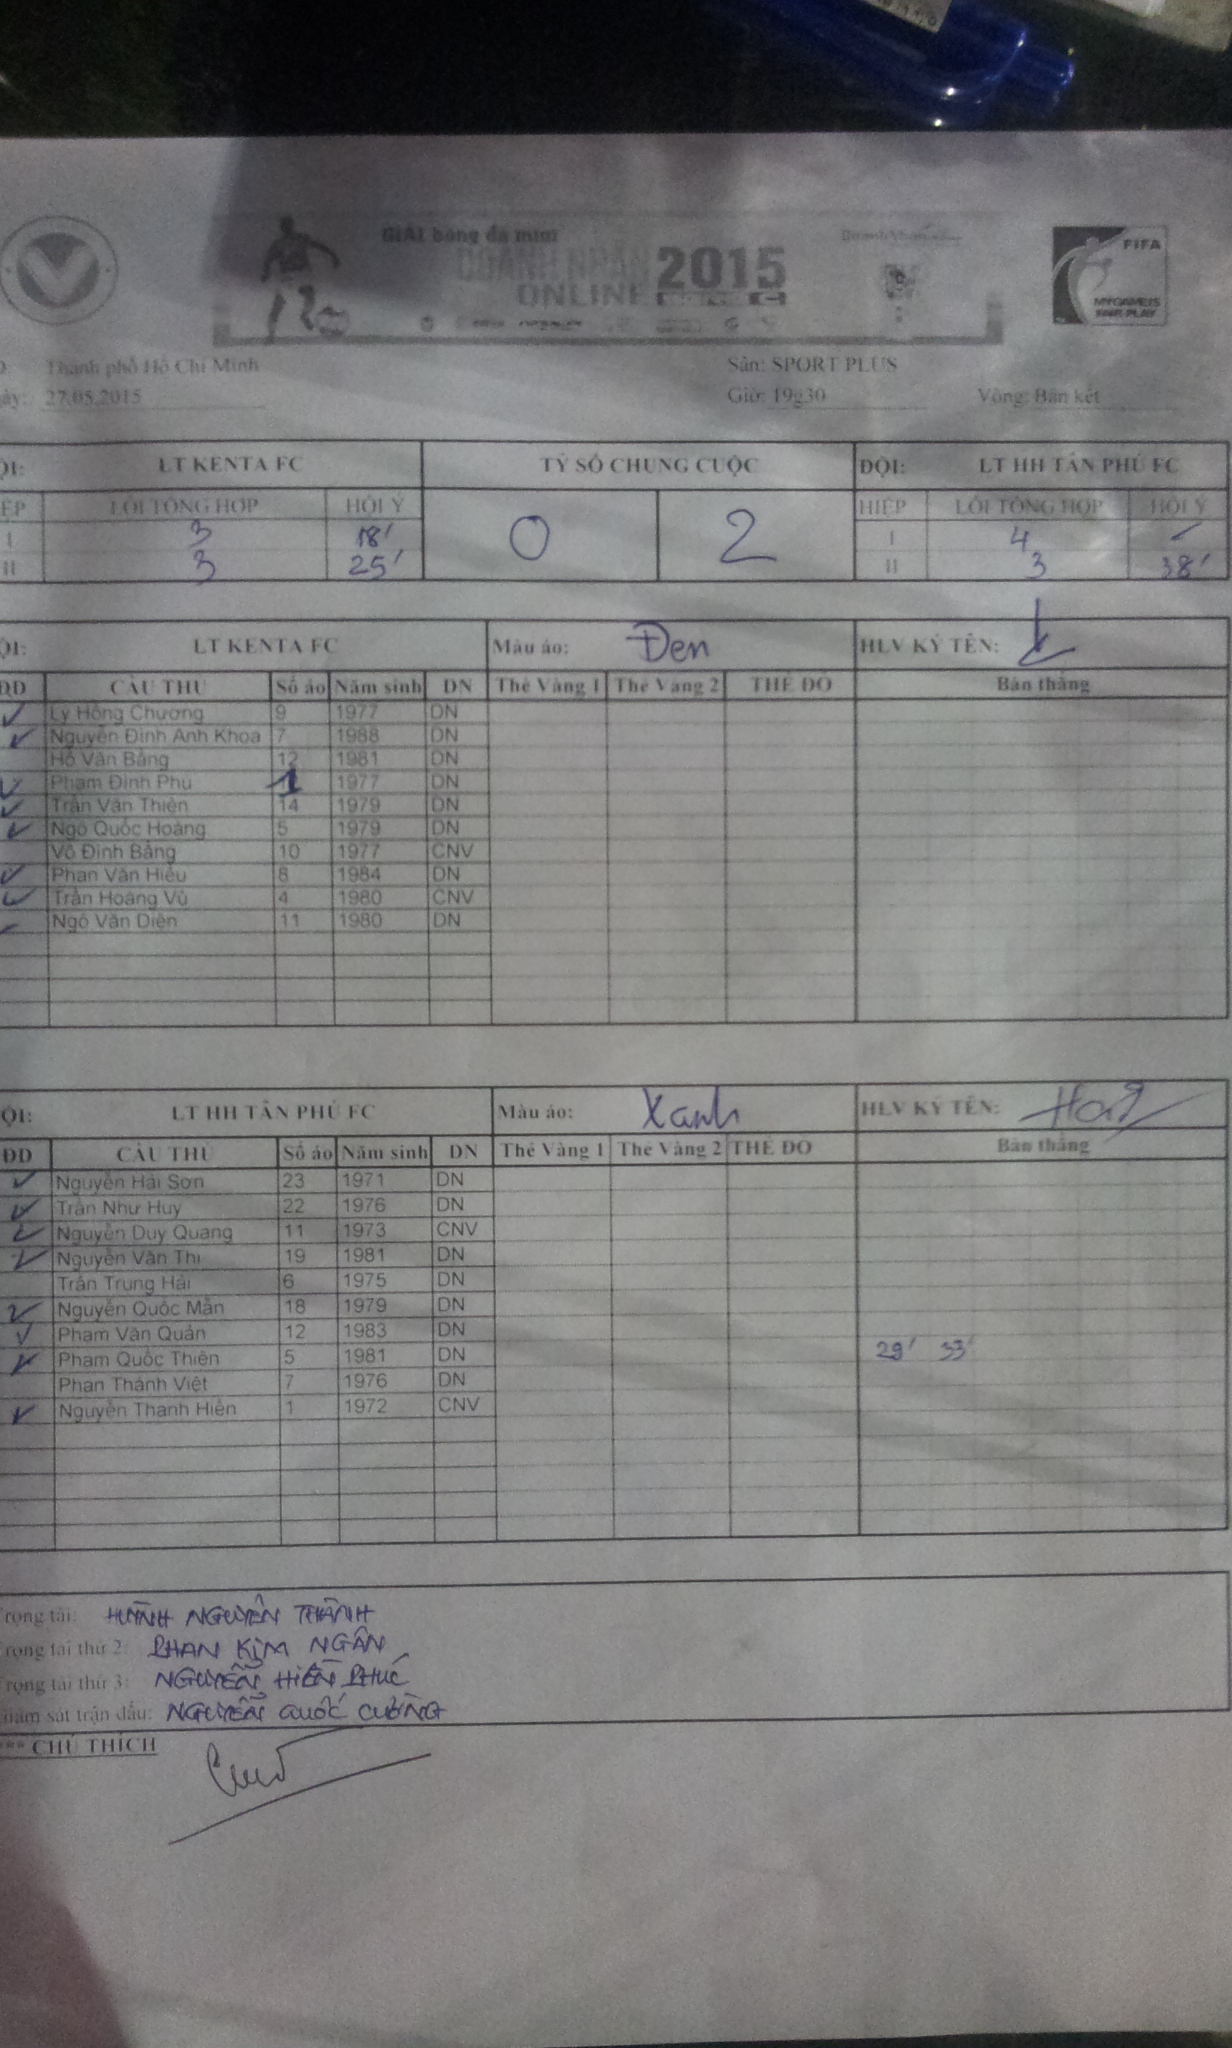 GIẢI bóng đá mini
DOANH NHÂN 2015
ONLINE
FIFA
MY GAME IS
FAIR PLAY
Thành phố Hồ Chí Minh Sân: SPORT PLUS
27.05.2015 Giờ: 19g30 Vòng: Bán kết
LT KENTA FC TỶ SỐ CHUNG CUỘC ĐỘI: LT HH TÂN PHÚ FC
LỖI TỔNG HỢP HỘI Ý 0 2 HIỆP LỖI TỔNG HỢP HỘI Ý
I 3 18' I 4 -
II 3 25' II 3 38'
LT KENTA FC Màu áo: Đen HLV KÝ TÊN:
ĐD CẦU THỦ Số áo Năm sinh DN Thẻ Vàng 1 Thẻ Vàng 2 THẺ ĐỎ Bàn thắng
Lý Hồng Chương 9 1977 DN
Nguyễn Đình Anh Khoa 7 1988 DN
Hồ Văn Bằng 12 1981 DN
Phạm Đình Phu 1 1977 DN
Trần Văn Thiện 14 1979 DN
Ngô Quốc Hoàng 5 1979 DN
Võ Đình Bảng 10 1977 CNV
Phan Văn Hiếu 8 1984 DN
Trần Hoàng Vũ 4 1980 CNV
Ngô Văn Diện 11 1980 DN
LT HH TÂN PHÚ FC Màu áo: Xanh HLV KÝ TÊN:
ĐD CẦU THỦ Số áo Năm sinh DN Thẻ Vàng 1 Thẻ Vàng 2 THẺ ĐỎ Bàn thắng
Nguyễn Hải Sơn 23 1971 DN
Trần Như Huy 22 1976 DN
Nguyễn Duy Quang 11 1973 CNV
Nguyễn Văn Thi 19 1981 DN
Trần Trung Hải 6 1975 DN
Nguyễn Quốc Mẫn 18 1979 DN
Phạm Văn Quản 12 1983 DN
Phạm Quốc Thiên 5 1981 DN 29' 33'
Phan Thành Việt 7 1976 DN
Nguyễn Thanh Hiền 1 1972 CNV
Trọng tài: HUỲNH NGUYÊN THÀNH
Trọng tài thứ 2: PHAN KIM NGÂN
Trọng tài thứ 3: NGUYỄN HIỀN PHÚC
Giám sát trận đấu: NGUYỄN QUỐC CƯỜNG
*** CHÚ THÍCH